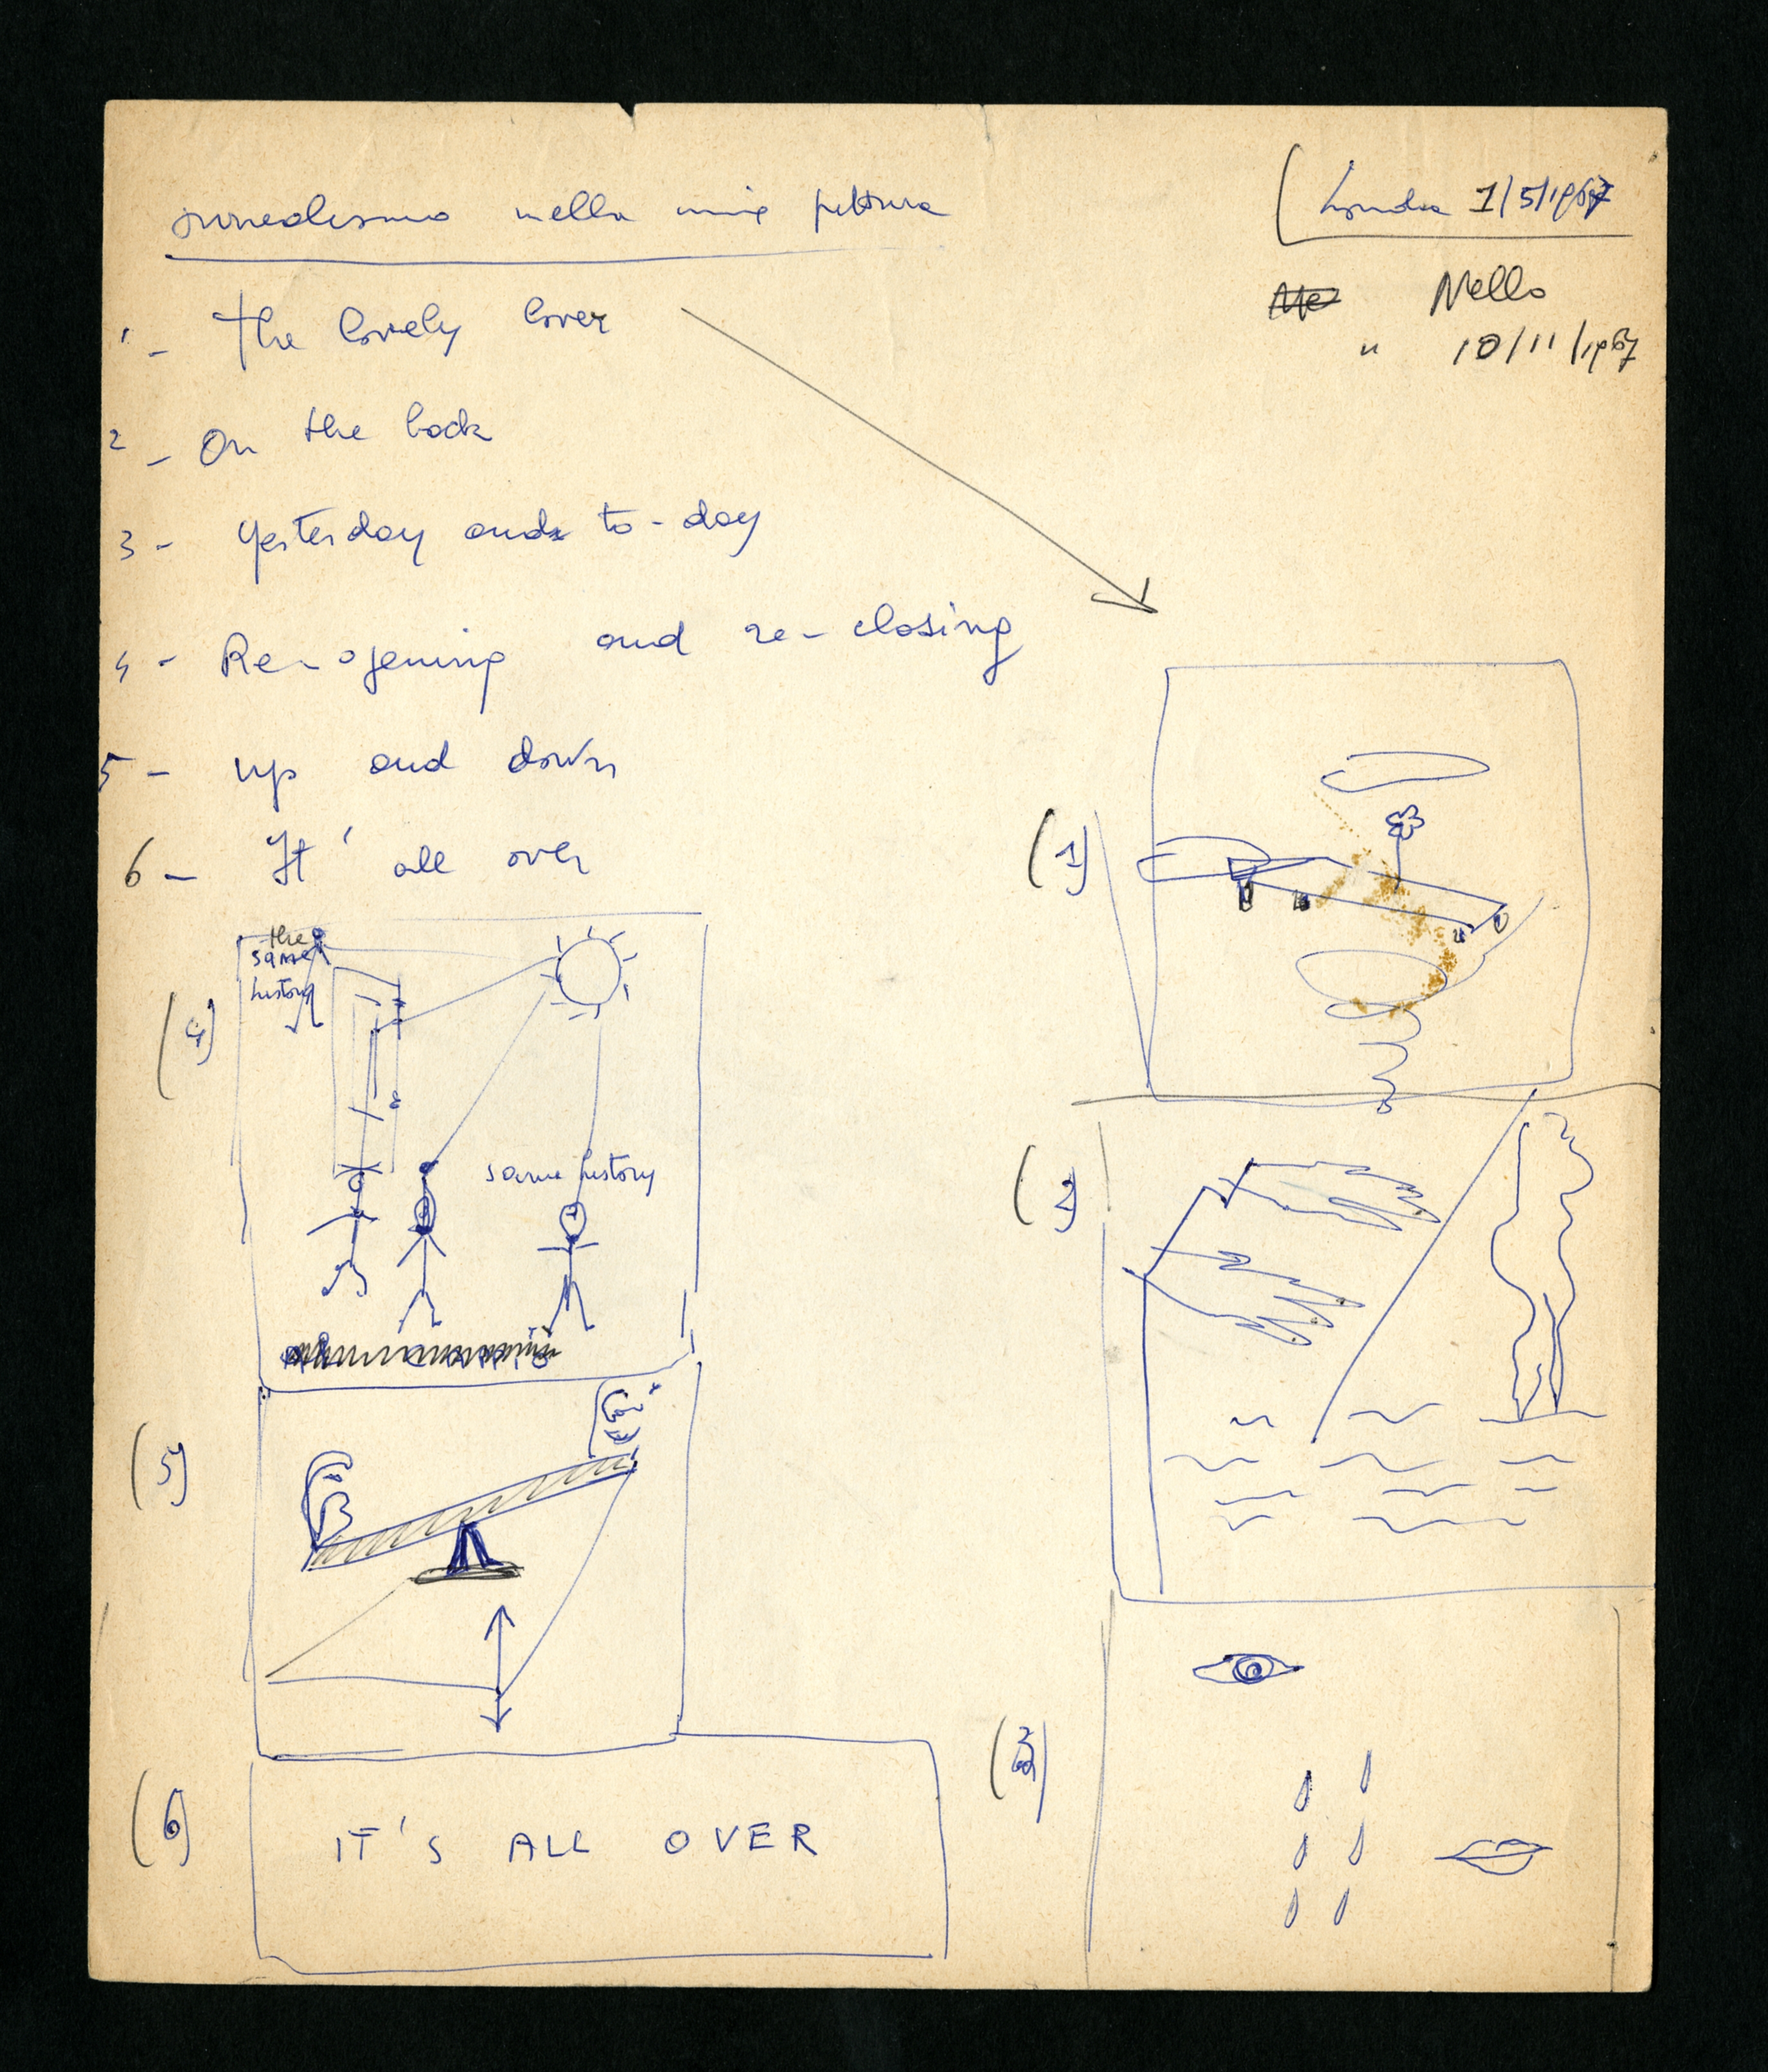 surrealismo nella mia pittura
(Londra 1/5/1967
Nello
" 10/11/1967
1 - The lovely lover
2 - On the back
3 - Yesterday and to-day
4 - Re-opening and re-closing
5 - up and down
6 - It' all over
(1)
the
same
history
(4)
same history
(2)
(5)
(3)
(6)
IT'S ALL OVER